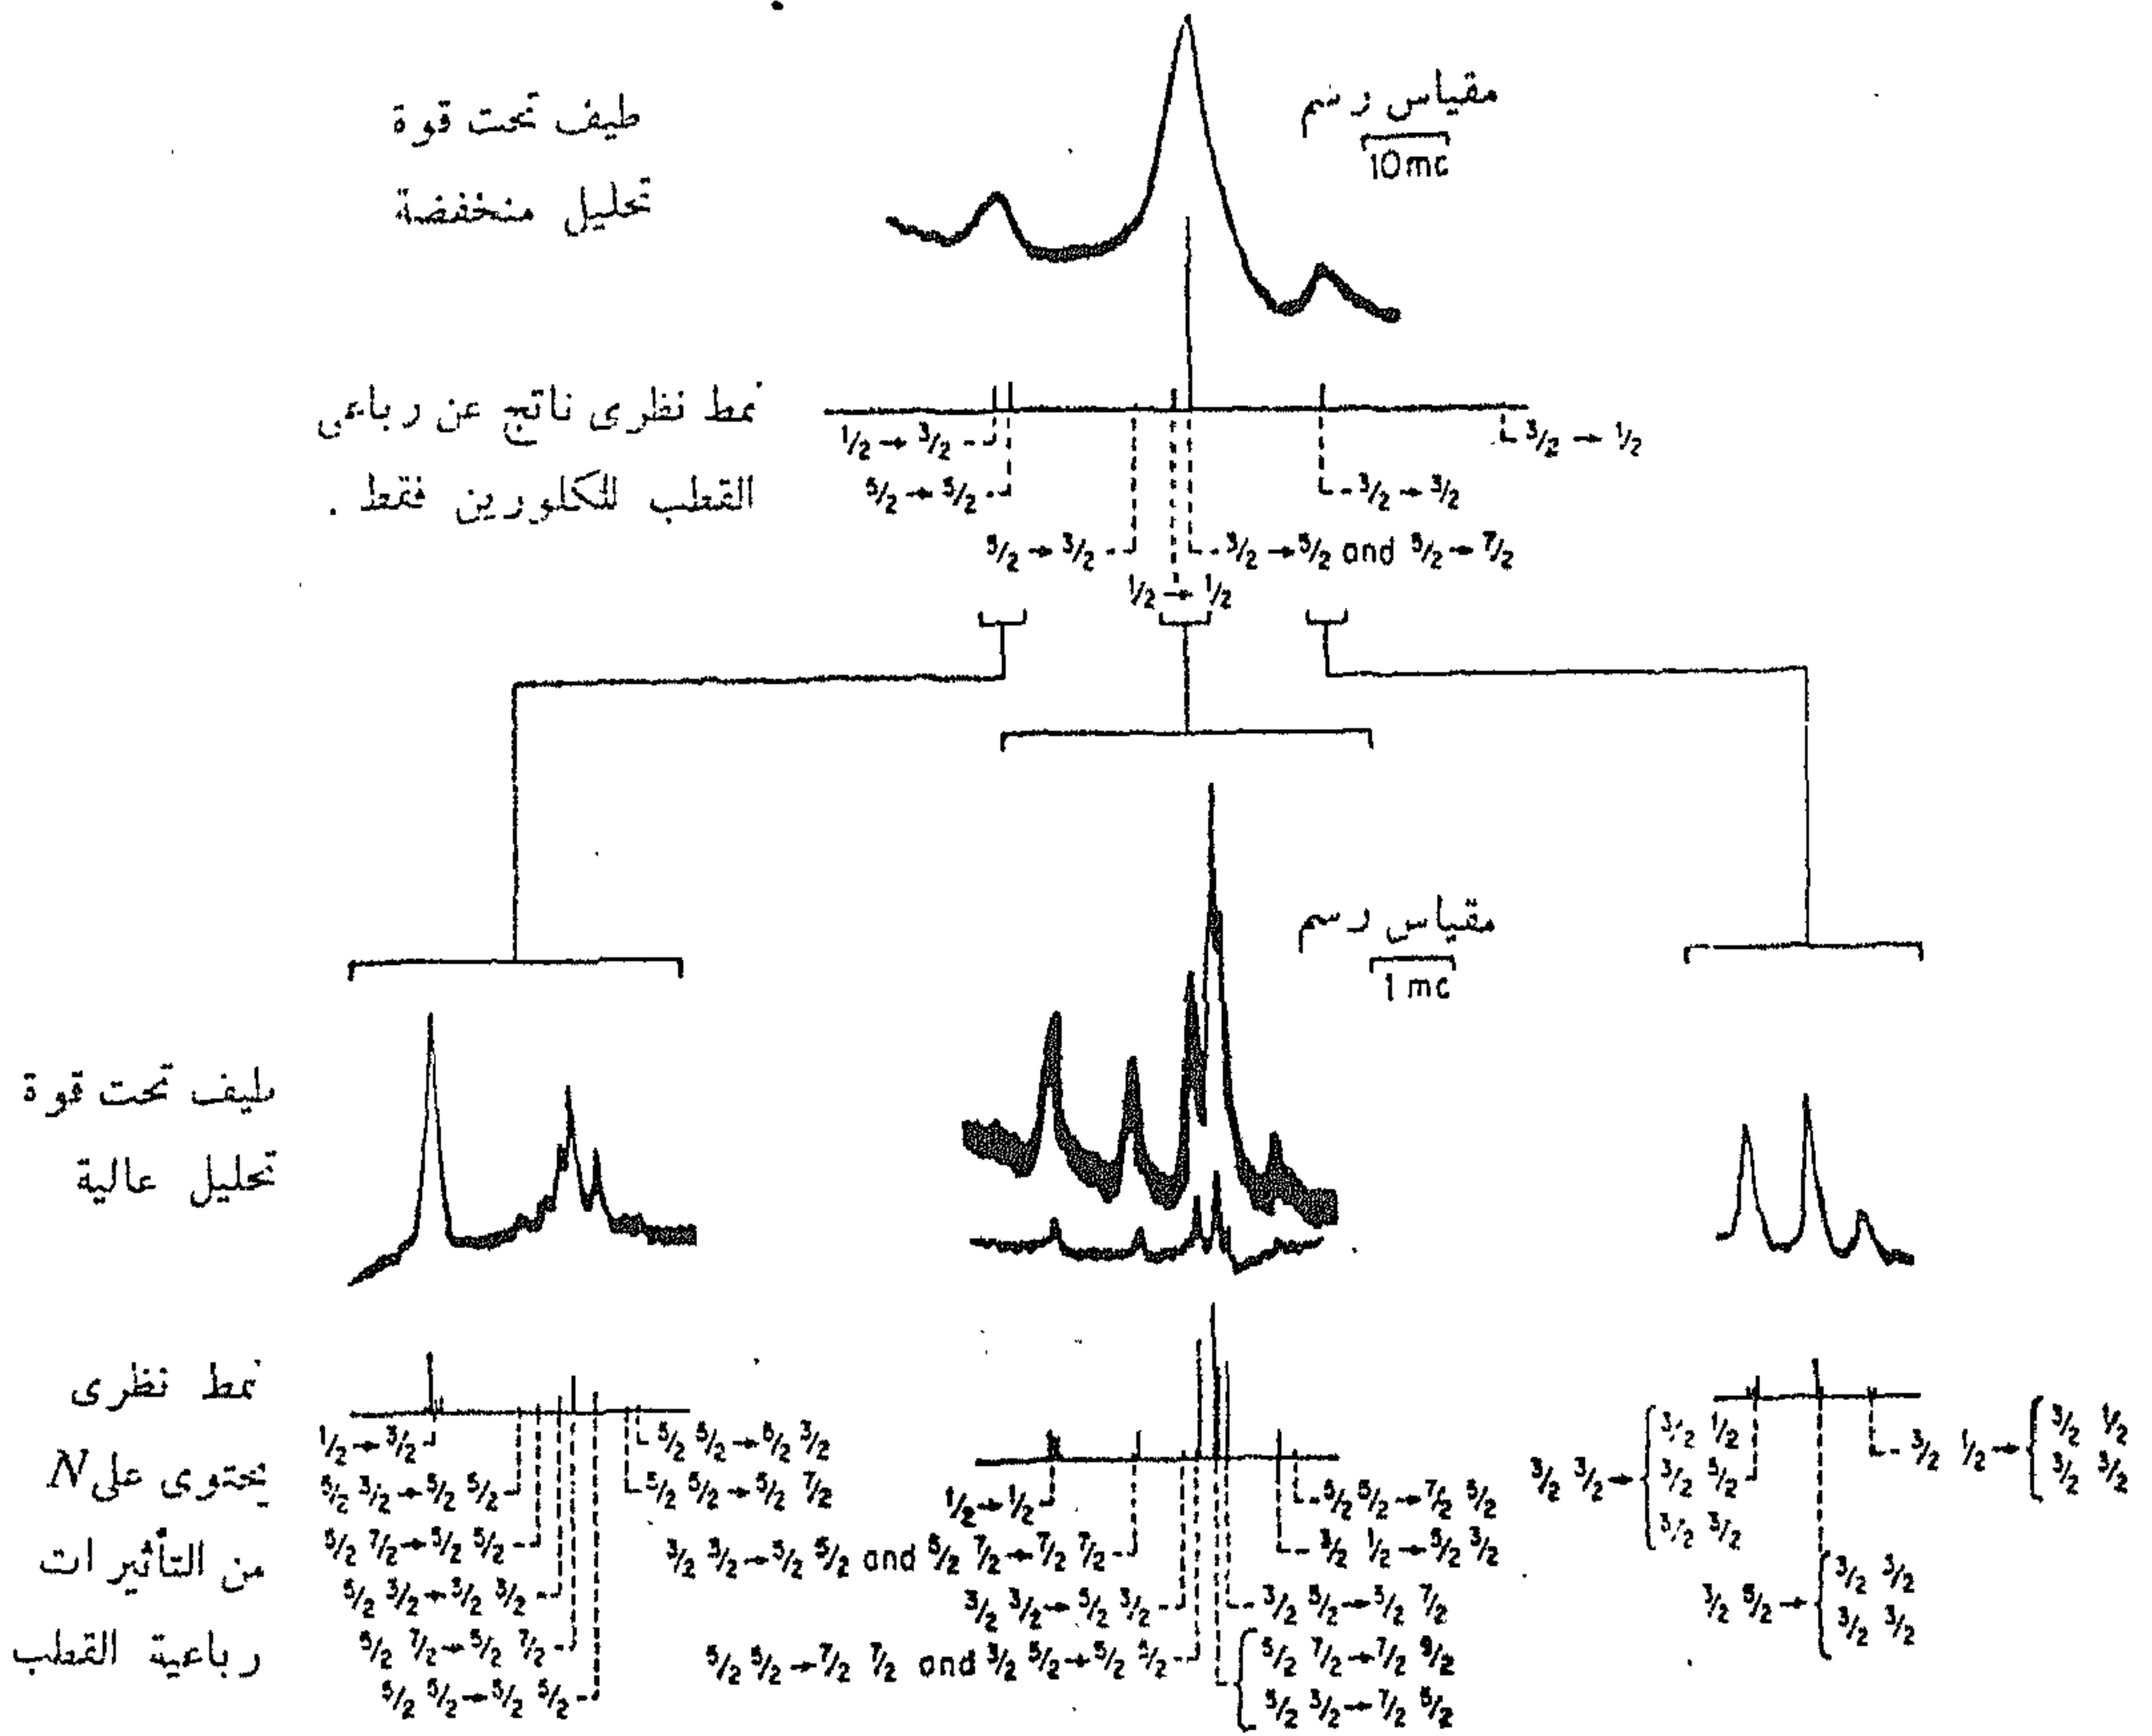 طيف تحت قوة
تحليل منخفضة
مقياس رسم
10mc
نمط نظرى ناتج عن رباعى
القطب للكلورين فقط .
1/2 → 3/2
5/2 → 5/2
5/2 → 3/2
1/2 → 1/2
3/2 → 5/2 and 5/2 → 7/2
3/2 → 3/2
3/2 → 1/2
مقياس رسم
1 mc
طيف تحت قوة
تحليل عالية
نمط نظرى
يحتوى على N
من التأثيرات
رباعية القطب
1/2 → 3/2
5/2 3/2 → 5/2 5/2
5/2 7/2 → 5/2 5/2
5/2 3/2 → 5/2 3/2
5/2 7/2 → 5/2 7/2
5/2 5/2 → 5/2 5/2
5/2 5/2 → 5/2 3/2
5/2 5/2 → 5/2 7/2
1/2 → 1/2
3/2 3/2 → 5/2 5/2 and 5/2 7/2 → 7/2 7/2
3/2 3/2 → 5/2 3/2
5/2 5/2 → 7/2 7/2 and 3/2 5/2 → 5/2 5/2
5/2 5/2 → 7/2 5/2
3/2 1/2 → 5/2 3/2
3/2 5/2 → 5/2 7/2
5/2 7/2 → 7/2 9/2
5/2 3/2 → 7/2 5/2
3/2 3/2 →
3/2 1/2
3/2 5/2
3/2 3/2
3/2 5/2 →
3/2 5/2
3/2 3/2
3/2 1/2 →
3/2 1/2
3/2 3/2